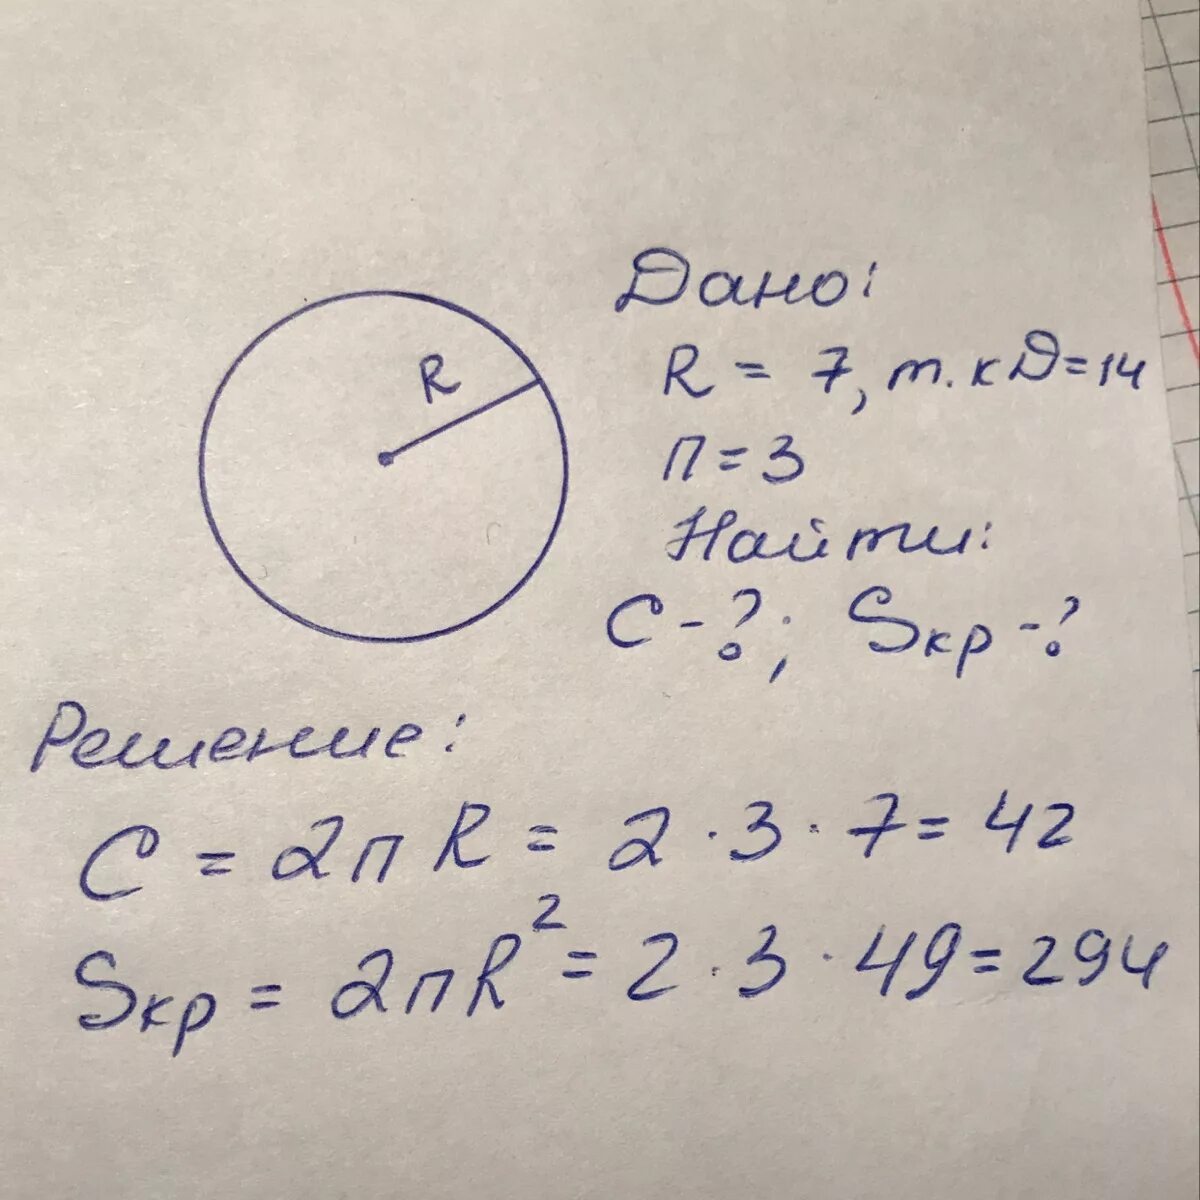 R
Дано:
R = 7, т.к D=14
П=3
Найти:
С-?; Sкр-?
Решение:
С = 2пR = 2·3·7=42
Sкр = 2пR²=2·3·49=294